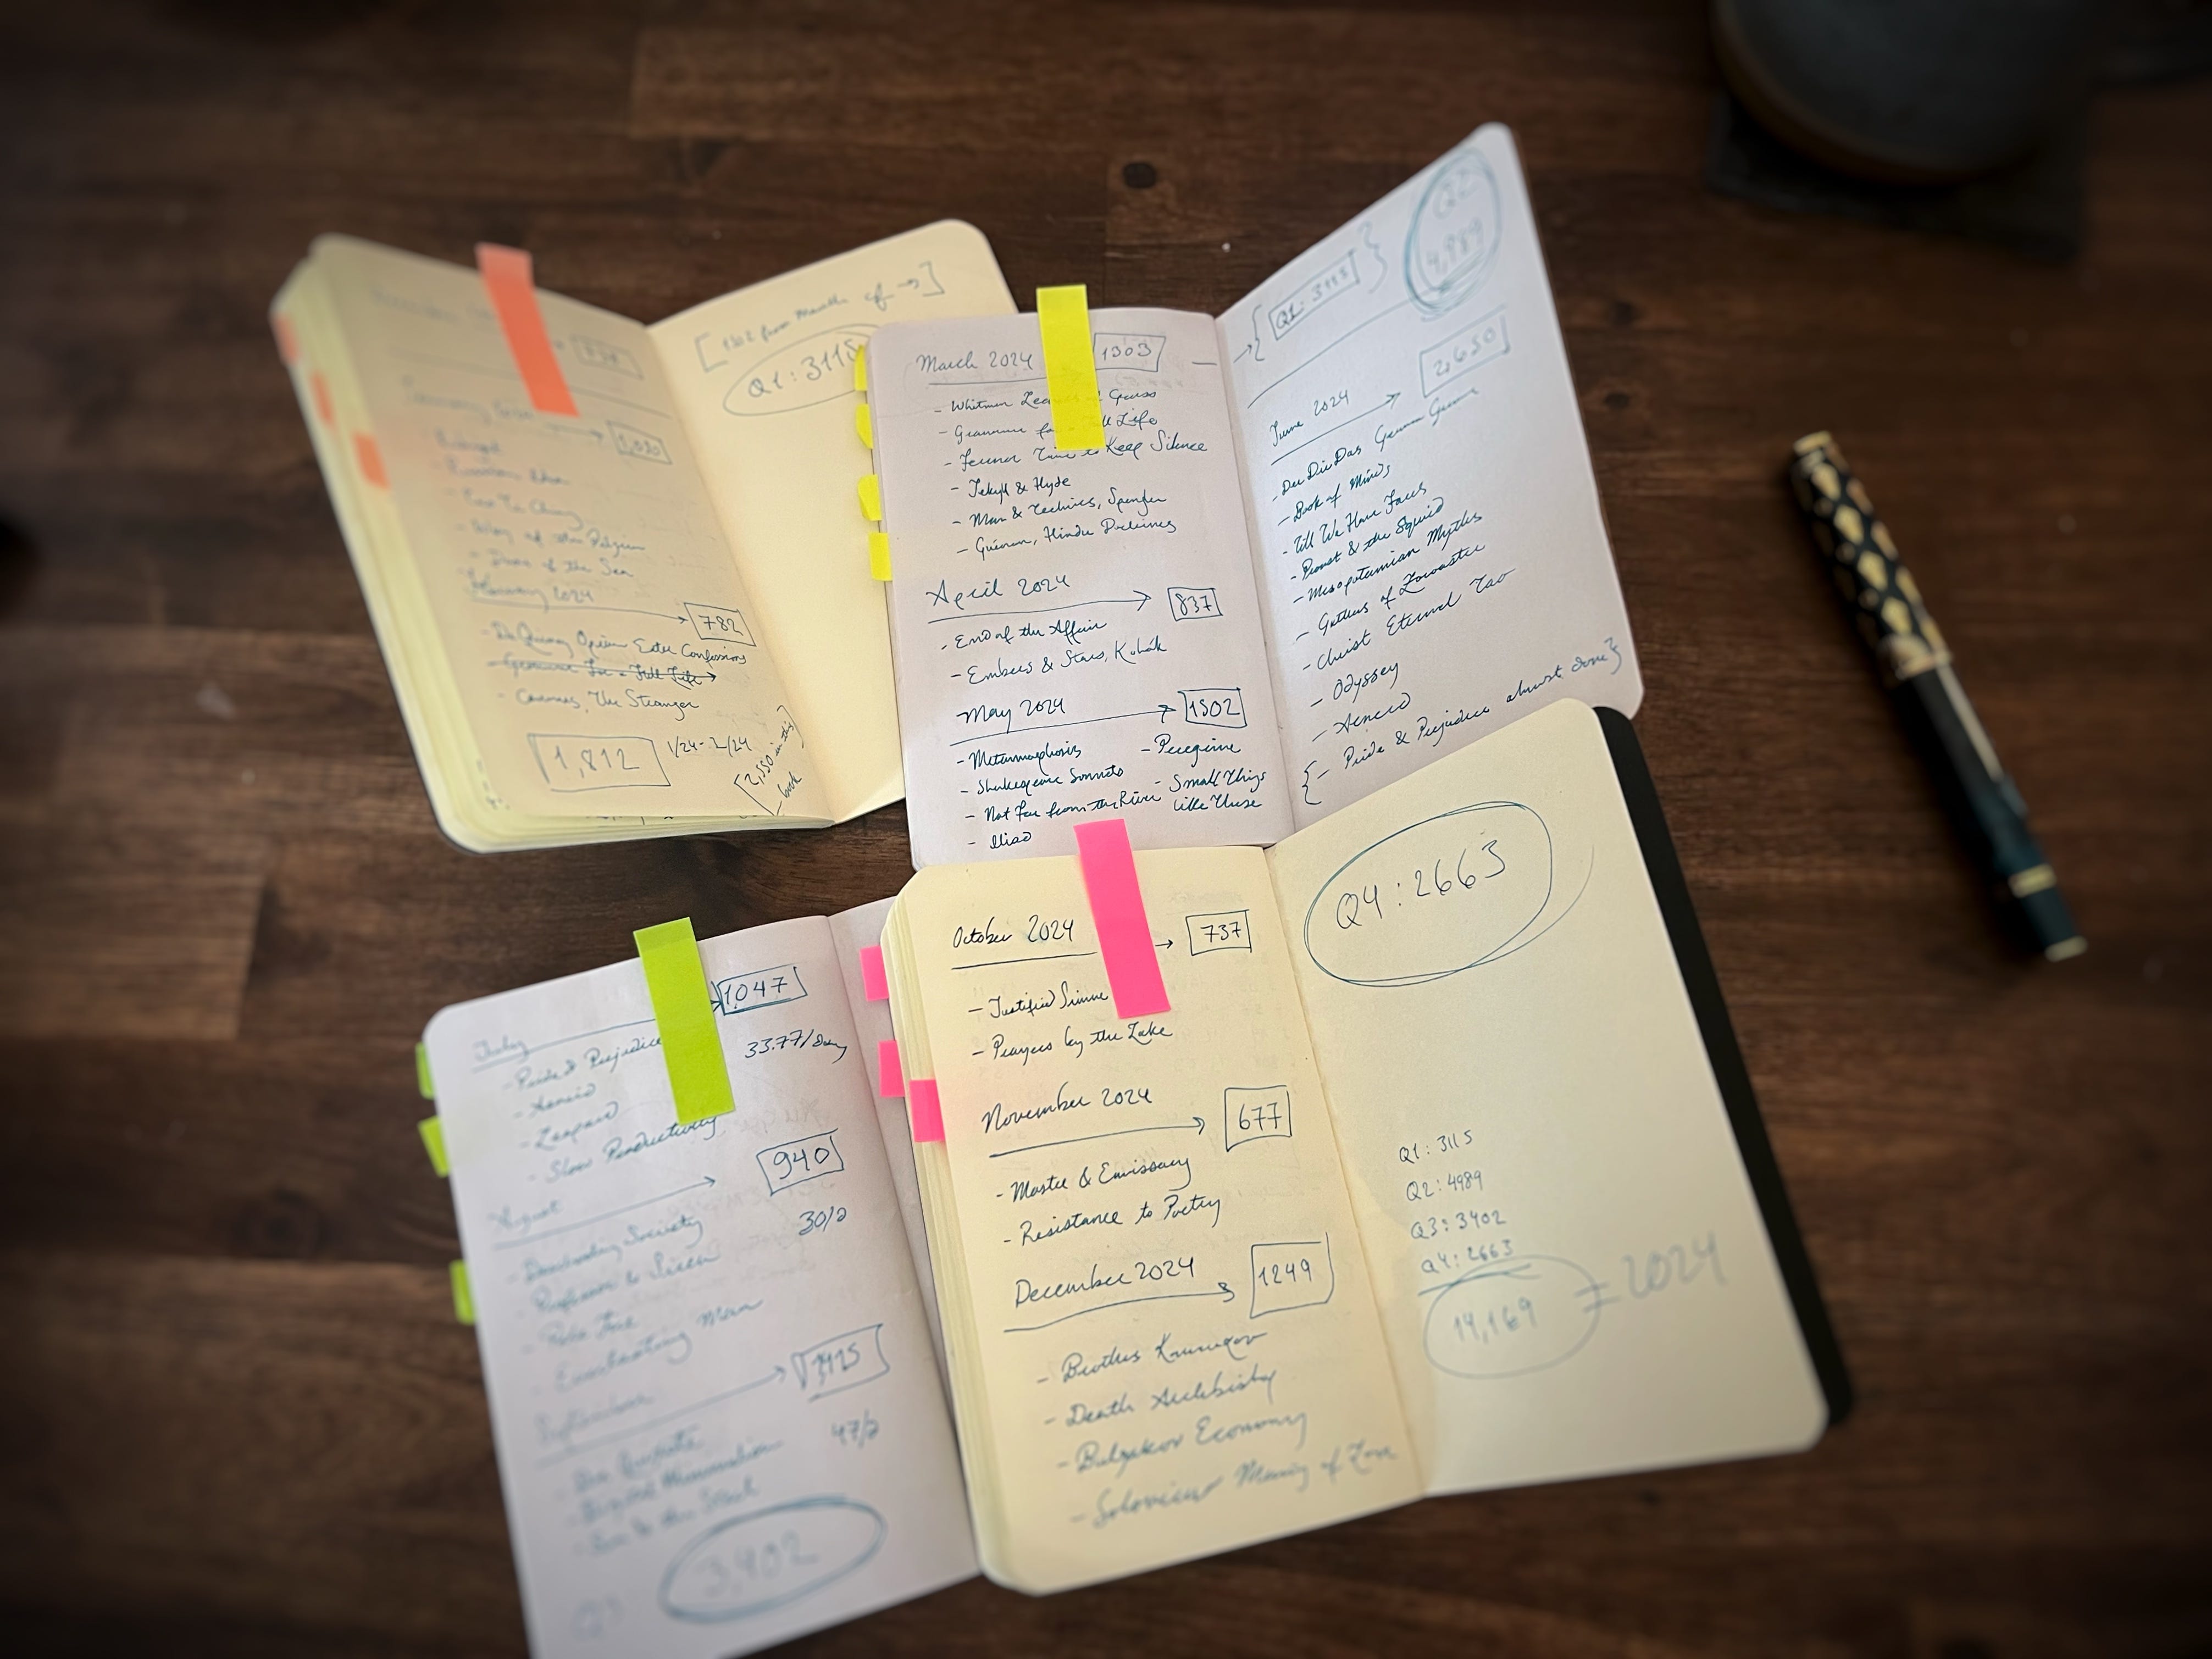 738
1,030
- Tao Te Ching
- Way of the Pilgrim
- of the Sea
February 2024
782
- De Quincey Opium Eater Confessions
- Grammar for a Full Life
- Camus, The Stranger
1,812
1/24-2/24
[2,550 in this
book
[1302 from March of →]
Q1: 3115
March 2024
1303
- Whitman Leaves of Grass
- Grammar for Full Life
- Fermor Time to Keep Silence
- Jekyll & Hyde
- Man & Technics, Spengler
- Guénon, Hindu Doctrines
April 2024
837
- End of the Affair
- Embers & Stars, Kohák
May 2024
1502
- Metamorphosis
- Shakespeare Sonnets
- Not Far from the River
- Iliad
- Peregrine
- Small Things
Like These
→ { Q1: 3115 }
Q2
4,989
June 2024
2,650
- Der Die Das German
- Book of Mirdad
- Till We Have Faces
- Proust & the Squid
- Mesopotamian Myths
- Gathas of Zoroaster
- Christ Eternal Tao
- Odyssey
- Aeneid
{- Pride & Prejudice almost done}
July
1,047
33.77/day
- Pride & Prejudice
- Aeneid
- Leopard
- Slow Productivity
August
940
30/d
- Society
- Professor & Siren
- Man
September
1415
47/d
- Don Quixote
- Digital Minimalism
- to the
Q3
3,402
October 2024
→ 737
- Justified Sinner
- Prayers by the Lake
November 2024
677
- Master & Emissary
- Resistance to Poetry
December 2024
1249
- Brothers Karamazov
- Death Archbishop
- Bulgakov Economy
- Soloviev Meaning of Love
Q4: 2663
Q1: 3115
Q2: 4989
Q3: 3402
Q4: 2663
14,169 = 2024